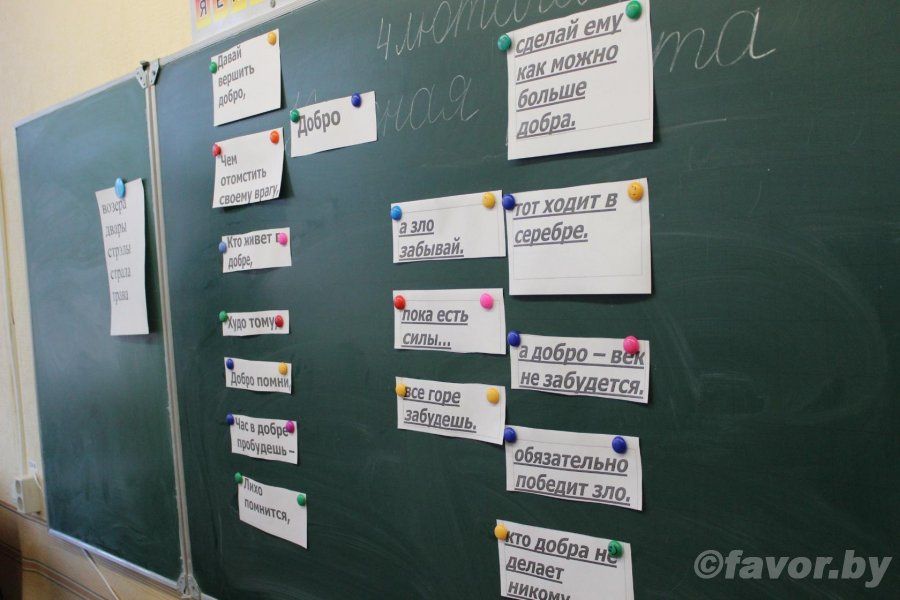 4 лютага
ная
та
Давай
вершить
добро,
Добро
Чем
отомстить
своему врагу,
Кто живет в
добре,
Худо тому,
Добро помни,
Час в добре
пробудешь –
Лихо
помнится,
возера
двары
стрэлы
страла
трава
сделай ему
как можно
больше
добра.
а зло
забывай.
тот ходит в
серебре.
пока есть
силы...
а добро – век
не забудется.
все горе
забудешь.
обязательно
победит зло.
кто добра не
делает
никому.
©favor.by